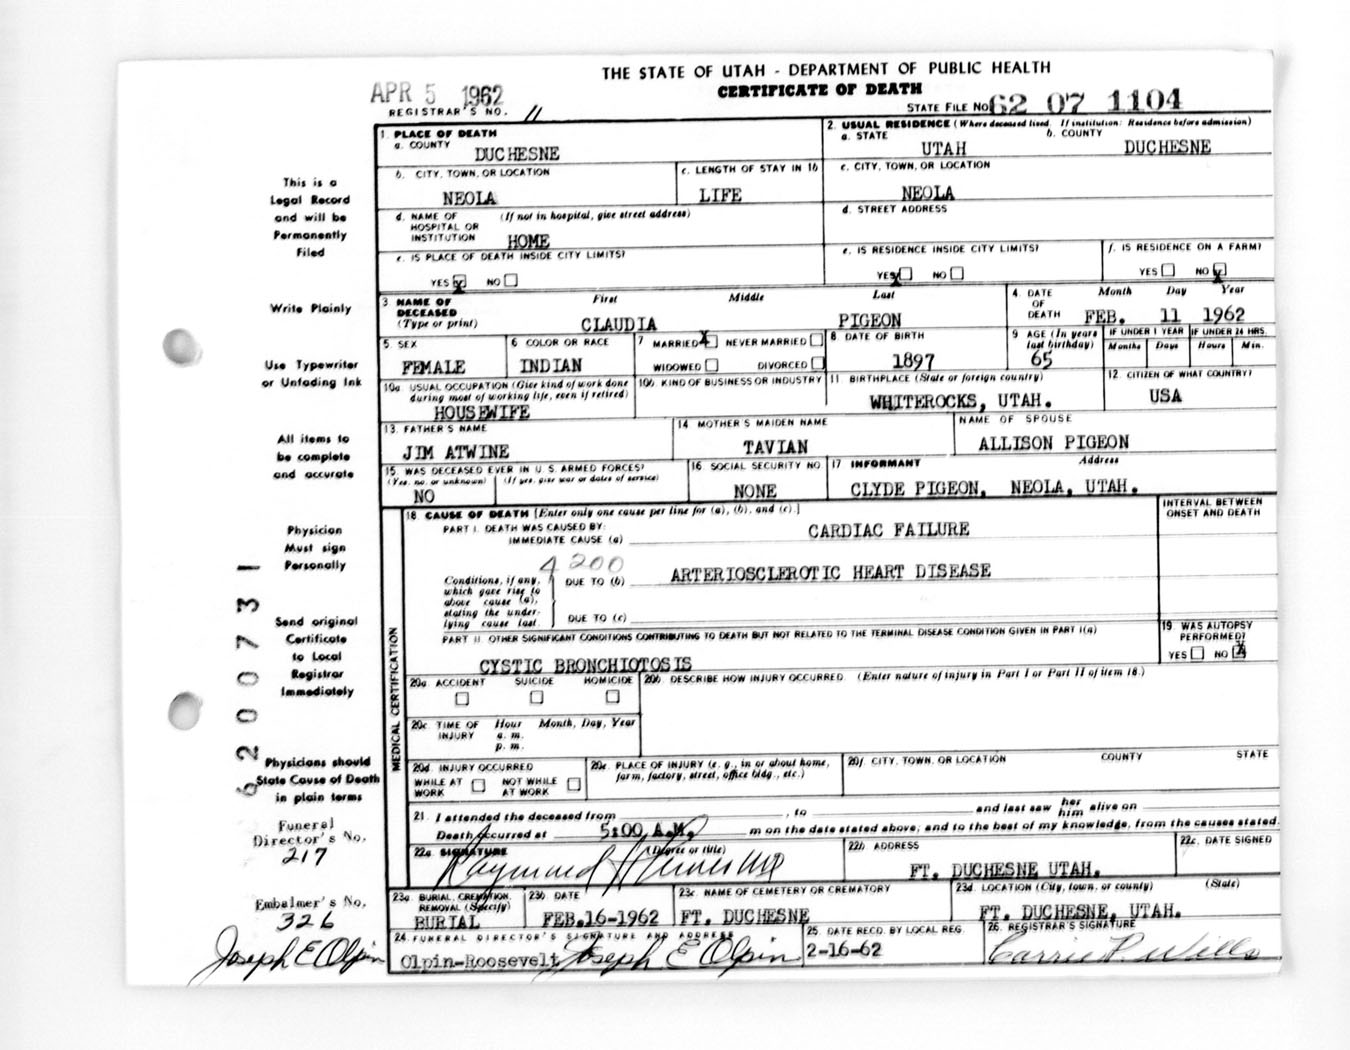 THE STATE OF UTAH - DEPARTMENT OF PUBLIC HEALTH
CERTIFICATE OF DEATH
APR 5 1962
REGISTRAR'S NO. 11
STATE FILE NO. 62 07 1104
1. PLACE OF DEATH
a. COUNTY
DUCHESNE
2. USUAL RESIDENCE (Where deceased lived. If institution: Residence before admission)
a. STATE b. COUNTY
UTAH DUCHESNE
b. CITY, TOWN, OR LOCATION
NEOLA
c. LENGTH OF STAY IN 1b
LIFE
c. CITY, TOWN, OR LOCATION
NEOLA
d. NAME OF (If not in hospital, give street address)
HOSPITAL OR
INSTITUTION HOME
d. STREET ADDRESS
e. IS PLACE OF DEATH INSIDE CITY LIMITS?
YES X NO
e. IS RESIDENCE INSIDE CITY LIMITS?
YES X NO
f. IS RESIDENCE ON A FARM?
YES NO X
3 NAME OF First Middle Last
DECEASED
(Type or print) CLAUDIA PIGEON
4. DATE Month Day Year
OF
DEATH FEB. 11 1962
5 SEX
FEMALE
6 COLOR OR RACE
INDIAN
7 MARRIED X NEVER MARRIED
WIDOWED DIVORCED
8 DATE OF BIRTH
1897
9 AGE (In years
last birthday)
65
IF UNDER 1 YEAR IF UNDER 24 HRS.
Months Days Hours Min.
10a USUAL OCCUPATION (Give kind of work done
during most of working life, even if retired)
HOUSEWIFE
10b KIND OF BUSINESS OR INDUSTRY
11. BIRTHPLACE (State or foreign country)
WHITEROCKS, UTAH.
12. CITIZEN OF WHAT COUNTRY?
USA
13. FATHER'S NAME
JIM ATWINE
14 MOTHER'S MAIDEN NAME
TAVIAN
NAME OF SPOUSE
ALLISON PIGEON
15. WAS DECEASED EVER IN U.S. ARMED FORCES?
(Yes, no, or unknown) (If yes, give war or dates of service)
NO
16 SOCIAL SECURITY NO.
NONE
17 INFORMANT Address
CLYDE PIGEON, NEOLA, UTAH.
18 CAUSE OF DEATH [Enter only one cause per line for (a), (b), and (c).]
INTERVAL BETWEEN
ONSET AND DEATH
PART I. DEATH WAS CAUSED BY:
IMMEDIATE CAUSE (a) CARDIAC FAILURE
4 200
Conditions, if any,
which gave rise to
above cause (a),
stating the under-
lying cause last.
DUE TO (b) ARTERIOSCLEROTIC HEART DISEASE
DUE TO (c)
PART II. OTHER SIGNIFICANT CONDITIONS CONTRIBUTING TO DEATH BUT NOT RELATED TO THE TERMINAL DISEASE CONDITION GIVEN IN PART I(a)
CYSTIC BRONCHIOTOSIS
19 WAS AUTOPSY
PERFORMED?
YES NO X
MEDICAL CERTIFICATION
20a. ACCIDENT SUICIDE HOMICIDE
20b. DESCRIBE HOW INJURY OCCURRED. (Enter nature of injury in Part I or Part II of item 18.)
20c. TIME OF Hour Month, Day, Year
INJURY a. m.
p. m.
20d. INJURY OCCURRED
WHILE AT NOT WHILE
WORK AT WORK
20e. PLACE OF INJURY (e. g., in or about home,
farm, factory, street, office bldg., etc.)
20f. CITY, TOWN, OR LOCATION COUNTY STATE
21. I attended the deceased from , to and last saw her him alive on
Death occurred at 5:00 A.M. m on the date stated above; and to the best of my knowledge, from the causes stated.
22a SIGNATURE (Degree or title)
Raymond
22b ADDRESS
FT. DUCHESNE UTAH.
22c. DATE SIGNED
23a. BURIAL, CREMATION,
REMOVAL (Specify)
BURIAL
23b. DATE
FEB.16-1962
23c. NAME OF CEMETERY OR CREMATORY
FT. DUCHESNE
23d. LOCATION (City, town, or county) (State)
FT. DUCHESNE, UTAH.
24. FUNERAL DIRECTOR'S SIGNATURE AND ADDRESS
Olpin-Roosevelt Joseph E Olpin
25. DATE RECD. BY LOCAL REG.
2-16-62
26. REGISTRAR'S SIGNATURE
Carrie P. Wills
This is a
Legal Record
and will be
Permanently
Filed
Write Plainly
Use Typewriter
or Unfading Ink
All items to
be complete
and accurate
Physician
Must sign
Personally
Send original
Certificate
to Local
Registrar
Immediately
Physicians should
State Cause of Death
in plain terms
6200731
Funeral
Director's No.
217
Embalmer's No.
326
Joseph E Olpin